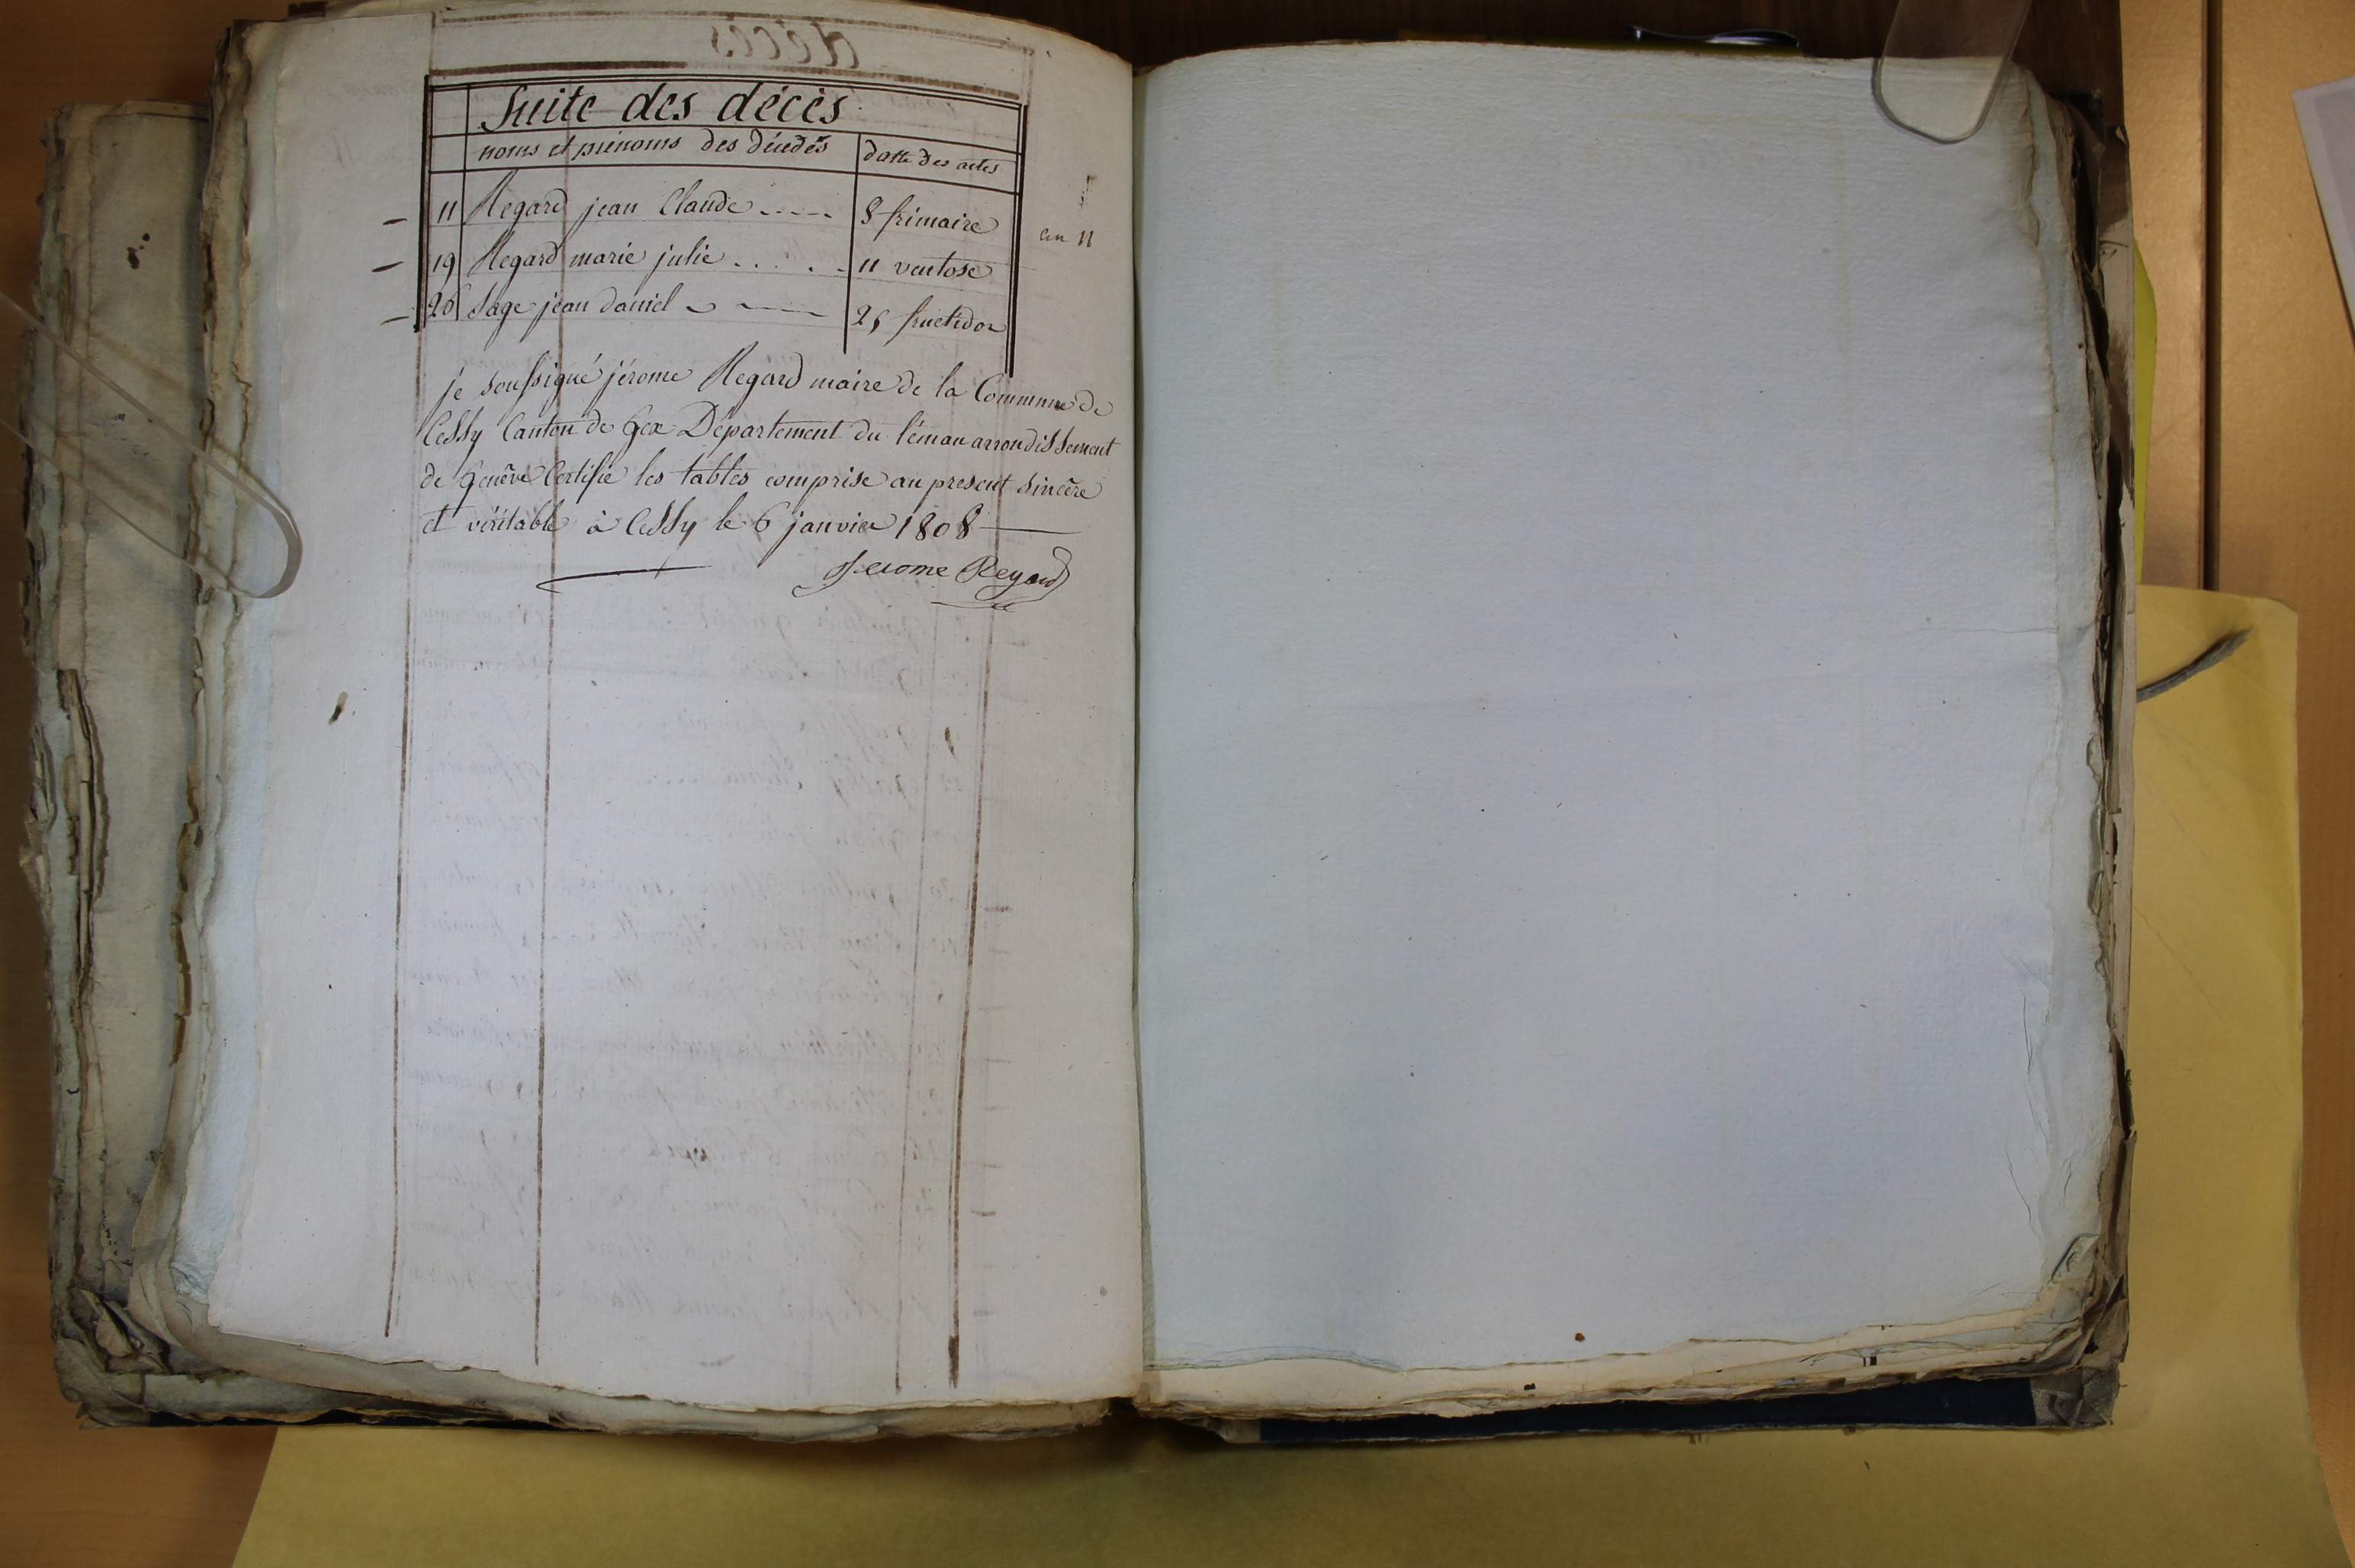 Suite des décès
noms et prénoms des décédés datte des actes
11 Regard jean Claude 8 frimaire
an 11
19 Regard marie julie 11 ventose
26 Sage jean daniel 25 fructidor
je soussigné jérome Regard maire de la Commune de
Cessy Canton de Gex Département du léman arrondissement
de Genève Certifie les tables comprise au present sincère
et véritable à Cessy le 6 janvier 1808
Jerome Regard